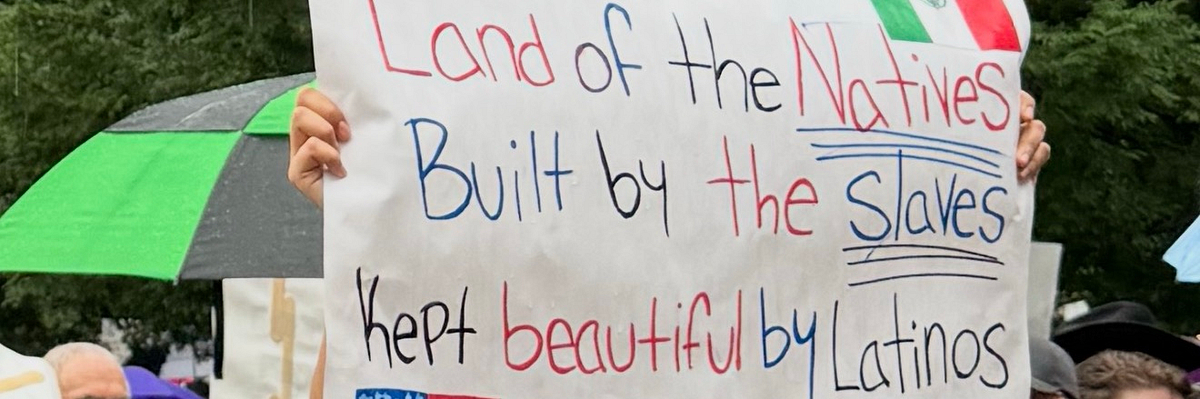 Land of the Natives
Built by the slaves
Kept beautiful by Latinos